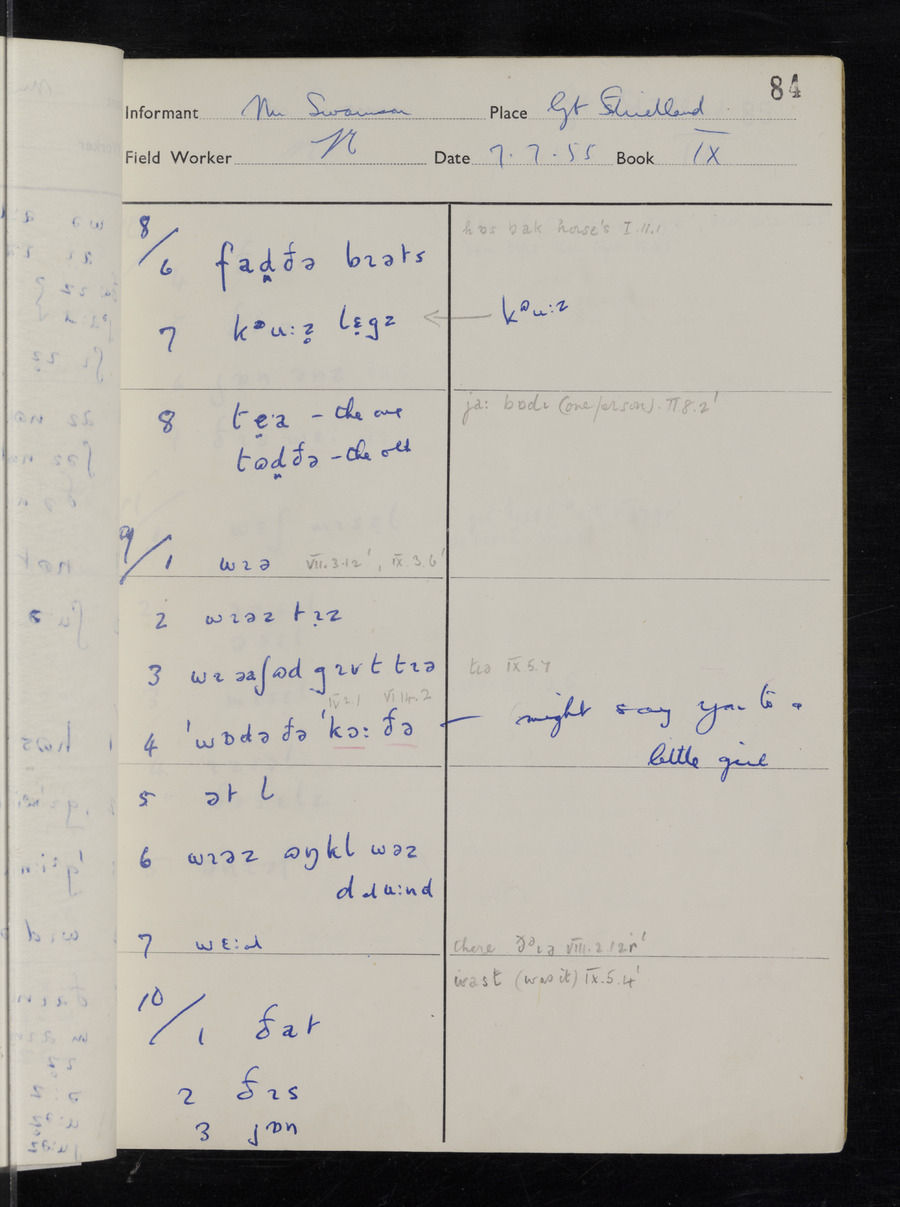 84
Informant Mr Swanson Place Gt Strickland
Field Worker Date 7.7.55 Book IX
8/6 fad̪ðə bɪəts
hɒs bak horse's I.11.1
7 kᵊu:z̥ lɛ̣gz ← kᵊu:z
8 tẹa - the one
tɷd̪ðə - the old
ja: bɒdɪ (one/person). VI 8.2'
9/1 wɪə VII.3.12', IX.3.6'
2 wɪəz tɪ̣z
3 wɪ əəʃɷd gɪv t tɪə
tɪə IX.5.7
IV.2.1 VI.14.2
4 'wɒdə ðə 'kə: ðə — might say you to a
little girl
5 ət l
6 wɪəz ɷŋkl wəz
dɹu:nd
7 wɛ:ɹ
there ðəɪə VIII.2.12'
wast (was it) IX.5.4'
10/1 ðat
2 ðɪs
3 jɒn